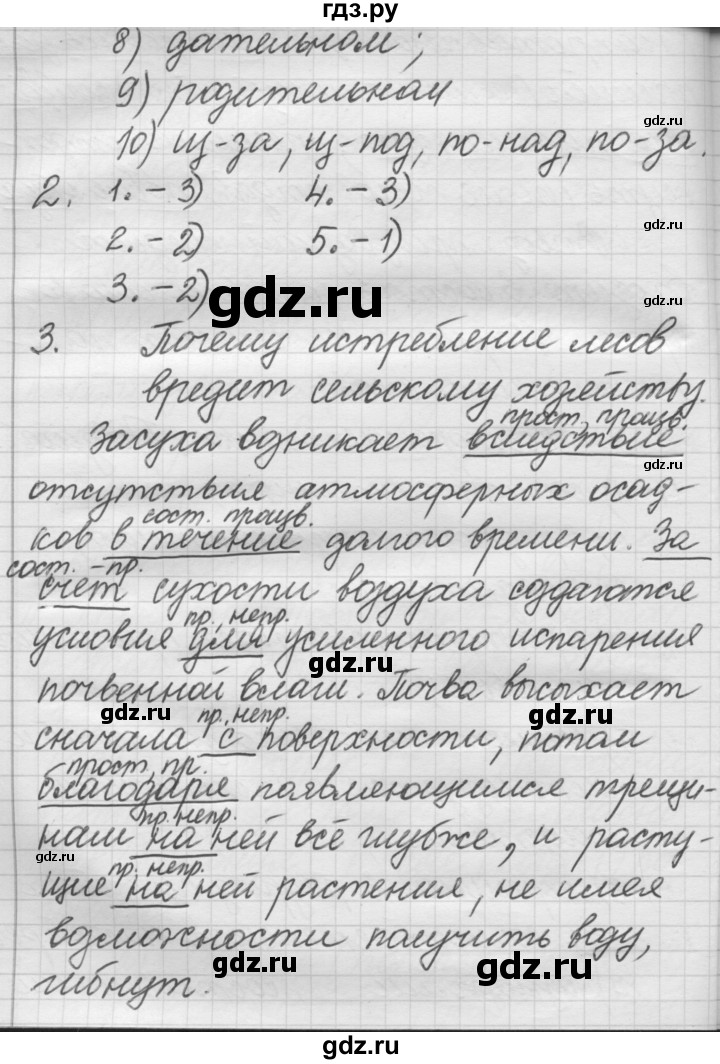 гдз.ру
8) дательном;
9) родительном
gdz.ru
10) из-за, из-под, по-над, по-за.
2. 1. – 3) 4. – 3)
gdz.ru
2. – 2) 5. – 1)
3. – 2)
gdz.ru
3. Почему истребление лесов
gdz.ru
вредит сельскому хозяйству.
прост. произв.
Засуха возникает вследствие
gdz.ru
отсутствия атмосферных осад-
сост. произв.
ков в течение долгого времени. За
gdz.ru
сост. – пр.
счет сухости воздуха создаются
пр. непр.
условия для усиленного испарения
gdz.ru
почвенной влаги. Почва высыхает
gdz.ru
gdz.ru
пр. непр.
сначала с поверхности, потом
прост. пр.
благодаря появляющимся трещи-
пр. непр.
нам на ней всё глубже, и расту-
gdz.ru
gdz.ru
пр. непр.
щие на ней растения, не имея
возможности получить воду,
gdz.ru
gdz.ru
гибнут.
gdz.ru